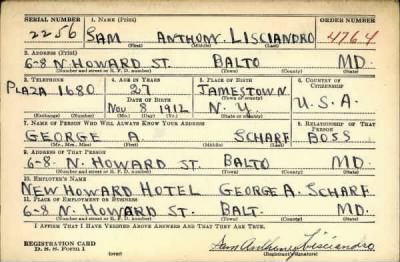 SERIAL NUMBER 1. NAME (Print) ORDER NUMBER
2256 SAM ANTHONY LISCIANDRO 4764
(First) (Middle) (Last)
2. ADDRESS (Print)
6-8 N. HOWARD ST. BALTO MD.
(Number and street or R. F. D. number) (Town) (County) (State)
3. TELEPHONE 4. AGE IN YEARS 5. PLACE OF BIRTH 6. COUNTRY OF CITIZENSHIP
PLAZA 1680 27 JAMESTOWN.
DATE OF BIRTH (Town or county)
NOV 8 1912 N. Y. U.S.A.
(Exchange) (Number) (Mo.) (Day) (Yr.) (State or country)
7. NAME OF PERSON WHO WILL ALWAYS KNOW YOUR ADDRESS 8. RELATIONSHIP OF THAT PERSON
GEORGE A. SCHARF BOSS
(Mr., Mrs., Miss) (First) (Middle) (Last)
9. ADDRESS OF THAT PERSON
6-8. N. HOWARD ST. BALTO MD.
(Number and street or R. F. D. number) (Town) (County) (State)
10. EMPLOYER'S NAME
NEW HOWARD HOTEL GEORGE A. SCHARF
11. PLACE OF EMPLOYMENT OR BUSINESS
6-8 N. HOWARD ST. BALT. MD.
(Number and street or R. F. D. number) (Town) (County) (State)
I AFFIRM THAT I HAVE VERIFIED ABOVE ANSWERS AND THAT THEY ARE TRUE.
REGISTRATION CARD
D. S. S. Form 1 (over) Sam Anthony Lisciandro
(Registrant's signature)